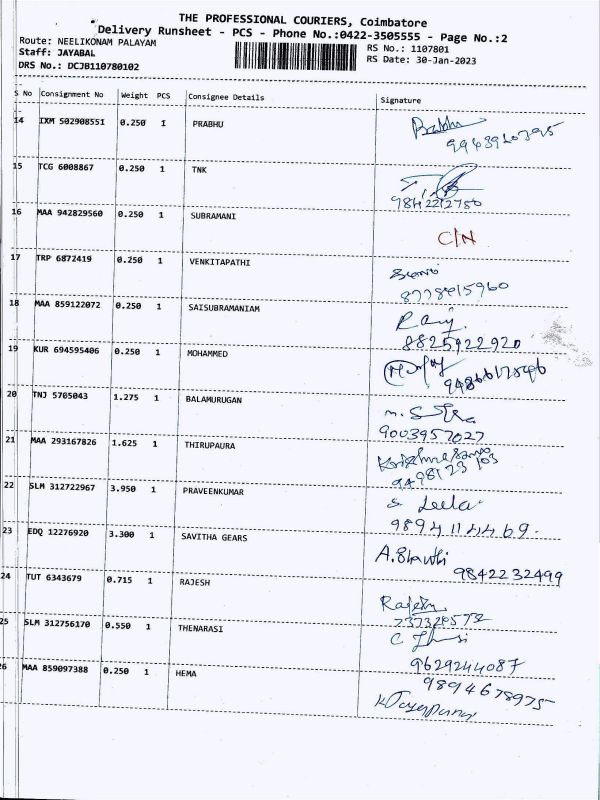 THE PROFESSIONAL COURIERS, Coimbatore
Delivery Runsheet - PCS - Phone No.:0422-3505555 - Page No.:2
Route: NEELIKONAM PALAYAM
RS No.: 1107801
Staff: JAYABAL
RS Date: 30-Jan-2023
DRS No.: DCJB110780102
S No Consignment No Weight PCS Consignee Details Signature
14 IXM 502908551 0.250 1 PRABHU Prabhu
15 TCG 6008867 0.250 1 TNK
9842212756
16 MAA 942829560 0.250 1 SUBRAMANI
C/N
17 TRP 6872419 0.250 1 VENKITAPATHI
8778415960
18 MAA 859122072 0.250 1 SAISUBRAMANIAM
8825922920
19 KUR 694595406 0.250 1 MOHAMMED
20 TNJ 5705043 1.275 1 BALAMURUGAN
9003957027
21 MAA 293167826 1.625 1 THIRUPAURA
9498123 103
22 SLM 312722967 3.950 1 PRAVEENKUMAR
S Leela
9894114469.
23 EDQ 12276920 3.300 1 SAVITHA GEARS
9842232499
24 TUT 6343679 0.715 1 RAJESH
Rajesh
25 SLM 312756170 0.550 1 THENARASI
9629244087
26 MAA 859097388 0.250 1 HEMA
9894678975